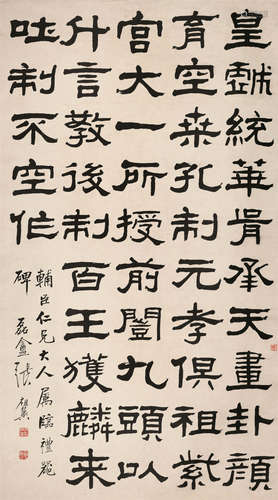 皇戲統華胥承天畫卦顏
育空桒孔制元孝俱祖紫
宮大一所授前闓九頭以
什言教後制百王獲麟来
吐制不空作
輔臣仁兄大人屬臨禮器
碑 磊盦張祖翼